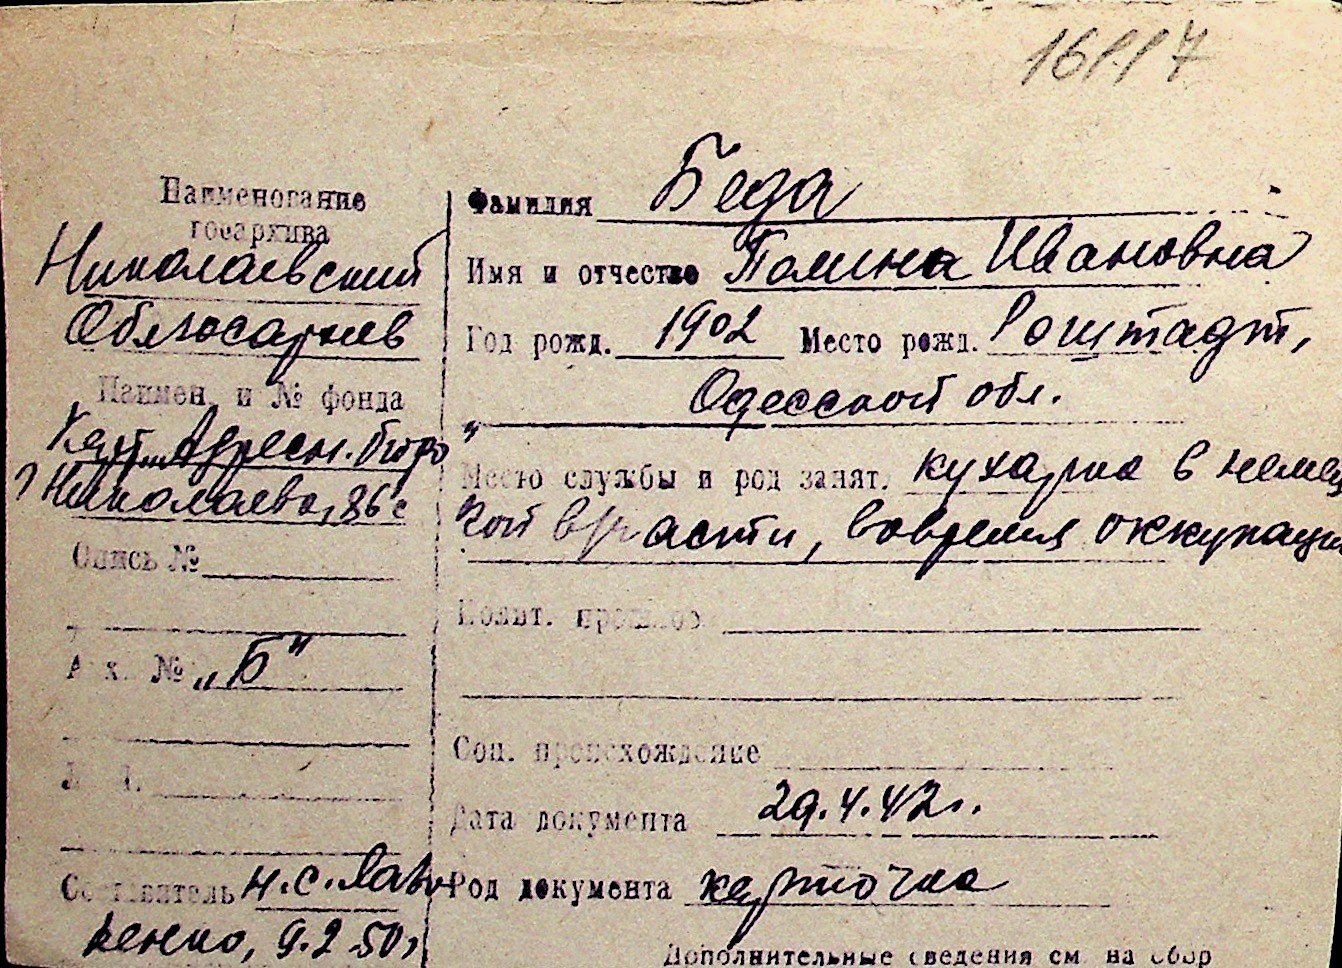 16117
Наименование
госархива
Николаевский
Облгосархив
Наимен. и № фонда
Карт. Адресн. бюро
г Николаева, 86с
Опись №
Арх. № „Б"
Составитель Н.С. Лав
ренко, 9.2.50г
Фамилия Беда
Имя и отчество Полина Ивановна
Год рожд. 1902 Место рожд. Роштадт,
Одесской обл.
Место службы и род занят. кухарка в немец
кой части, вовремя оккупации
Полит. прошлое
Соц. происхождение
Дата документа 29.4.42г.
Род документа карточка
Дополнительные сведения см на обор